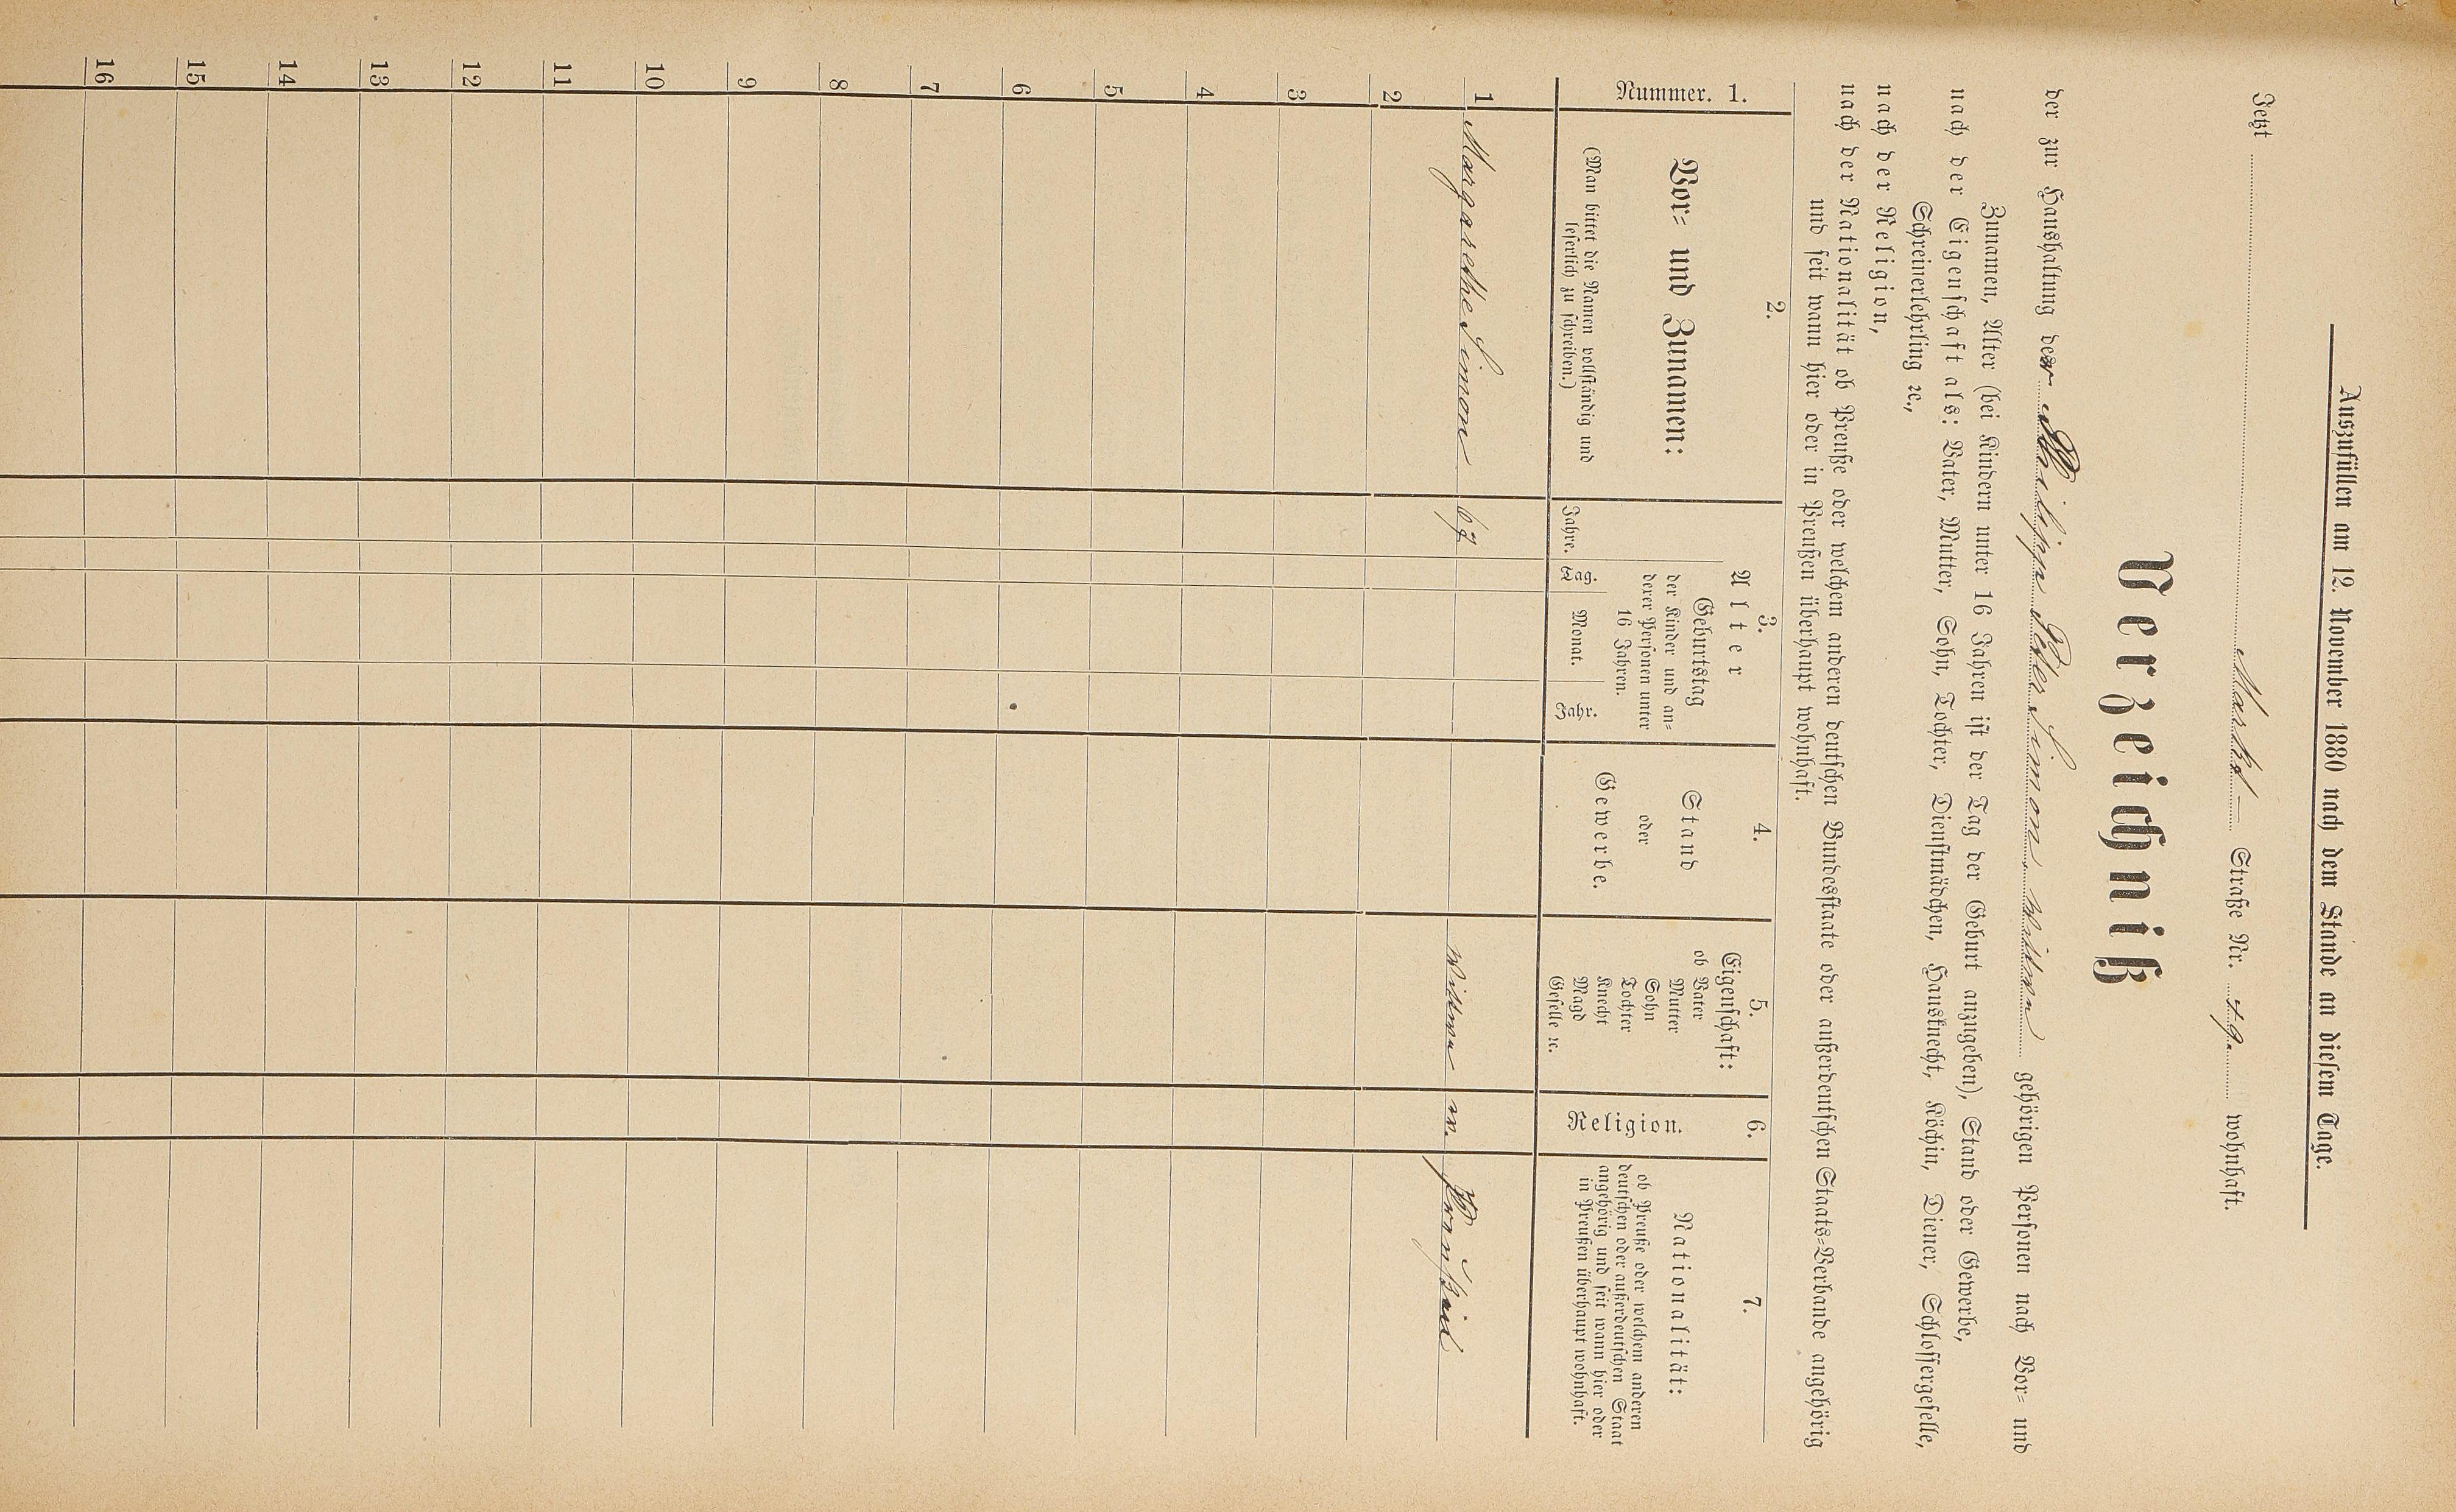 Auszufüllen am 12. November 1880 nach dem Stande an diesem Tage.
Jetzt Markt- Straße Nr. 49. wohnhaft.
Verzeichniß
der zur Haushaltung der Philipp Peter Simon, Witwe gehörigen Personen nach Vor- und
Zunamen, Alter (bei Kindern unter 16 Jahren ist der Tag der Geburt anzugeben), Stand oder Gewerbe,
nach der Eigenschaft als: Vater, Mutter, Sohn, Tochter, Dienstmädchen, Hausknecht, Köchin, Diener, Schlossergeselle,
Schreinerlehrling ꝛc.,
nach der Religion,
nach der Nationalität ob Preuße oder welchem anderen deutschen Bundesstaate oder außerdeutschen Staats-Verbande angehörig
und seit wann hier oder in Preußen überhaupt wohnhaft.
Nummer. 1.
2.
Vor- und Zunamen:
(Man bittet die Namen vollständig und
leserlich zu schreiben.)
3.
Alter
Jahre.
Geburtstag
der Kinder und an-
derer Personen unter
16 Jahren.
Tag. Monat. Jahr.
4.
Stand
oder
Gewerbe.
5.
Eigenschaft:
ob Vater
Mutter
Sohn
Tochter
Knecht
Magd
Geselle ꝛc.
6.
Religion.
7.
Nationalität:
ob Preuße oder welchem anderen
deutschen oder außerdeutschen Staat
angehörig und seit wann hier oder
in Preußen überhaupt wohnhaft.
1 Margarethe Simon 67 Wittwe ev. Preußin
2
3
4
5
6
7
8
9
10
11
12
13
14
15
16